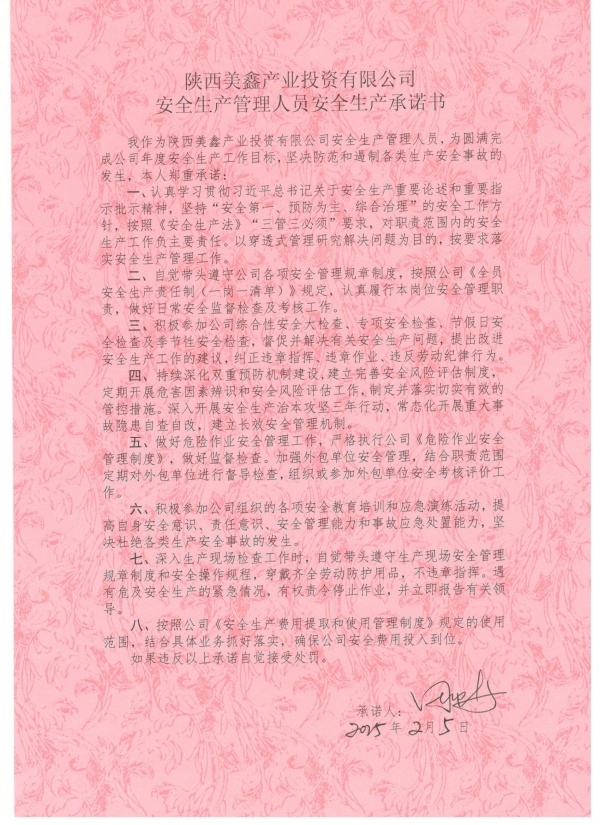 陕西美鑫产业投资有限公司
安全生产管理人员安全生产承诺书
我作为陕西美鑫产业投资有限公司安全生产管理人员，为圆满完
成公司年度安全生产工作目标，坚决防范和遏制各类生产安全事故的
发生，本人郑重承诺：
一、认真学习贯彻习近平总书记关于安全生产重要论述和重要指
示批示精神，坚持“安全第一、预防为主、综合治理”的安全工作方
针，按照《安全生产法》“三管三必须”要求，对职责范围内的安全
生产工作负主要责任。以穿透式管理研究解决问题为目的，按要求落
实安全生产管理工作。
二、自觉带头遵守公司各项安全管理规章制度，按照公司《全员
安全生产责任制（一岗一清单）》规定，认真履行本岗位安全管理职
责，做好日常安全监督检查及考核工作。
三、积极参加公司综合性安全大检查、专项安全检查、节假日安
全检查及季节性安全检查，督促并解决有关安全生产问题，提出改进
安全生产工作的建议，纠正违章指挥、违章作业、违反劳动纪律行为。
四、持续深化双重预防机制建设，建立完善安全风险评估制度，
定期开展危害因素辨识和安全风险评估工作，制定并落实切实有效的
管控措施。深入开展安全生产治本攻坚三年行动，常态化开展重大事
故隐患自查自改，建立长效安全管理机制。
五、做好危险作业安全管理工作，严格执行公司《危险作业安全
管理制度》，做好监督检查。加强外包单位安全管理，结合职责范围
定期对外包单位进行督导检查，组织或参加外包单位安全考核评价工
作。
六、积极参加公司组织的各项安全教育培训和应急演练活动，提
高自身安全意识、责任意识、安全管理能力和事故应急处置能力，坚
决杜绝各类生产安全事故的发生。
七、深入生产现场检查工作时，自觉带头遵守生产现场安全管理
规章制度和安全操作规程，穿戴齐全劳动防护用品，不违章指挥。遇
有危及安全生产的紧急情况，有权责令停止作业，并立即报告有关领
导。
八、按照公司《安全生产费用提取和使用管理制度》规定的使用
范围，结合具体业务抓好落实，确保公司安全费用投入到位。
如果违反以上承诺自觉接受处罚。
承诺人：
2025年2月5日